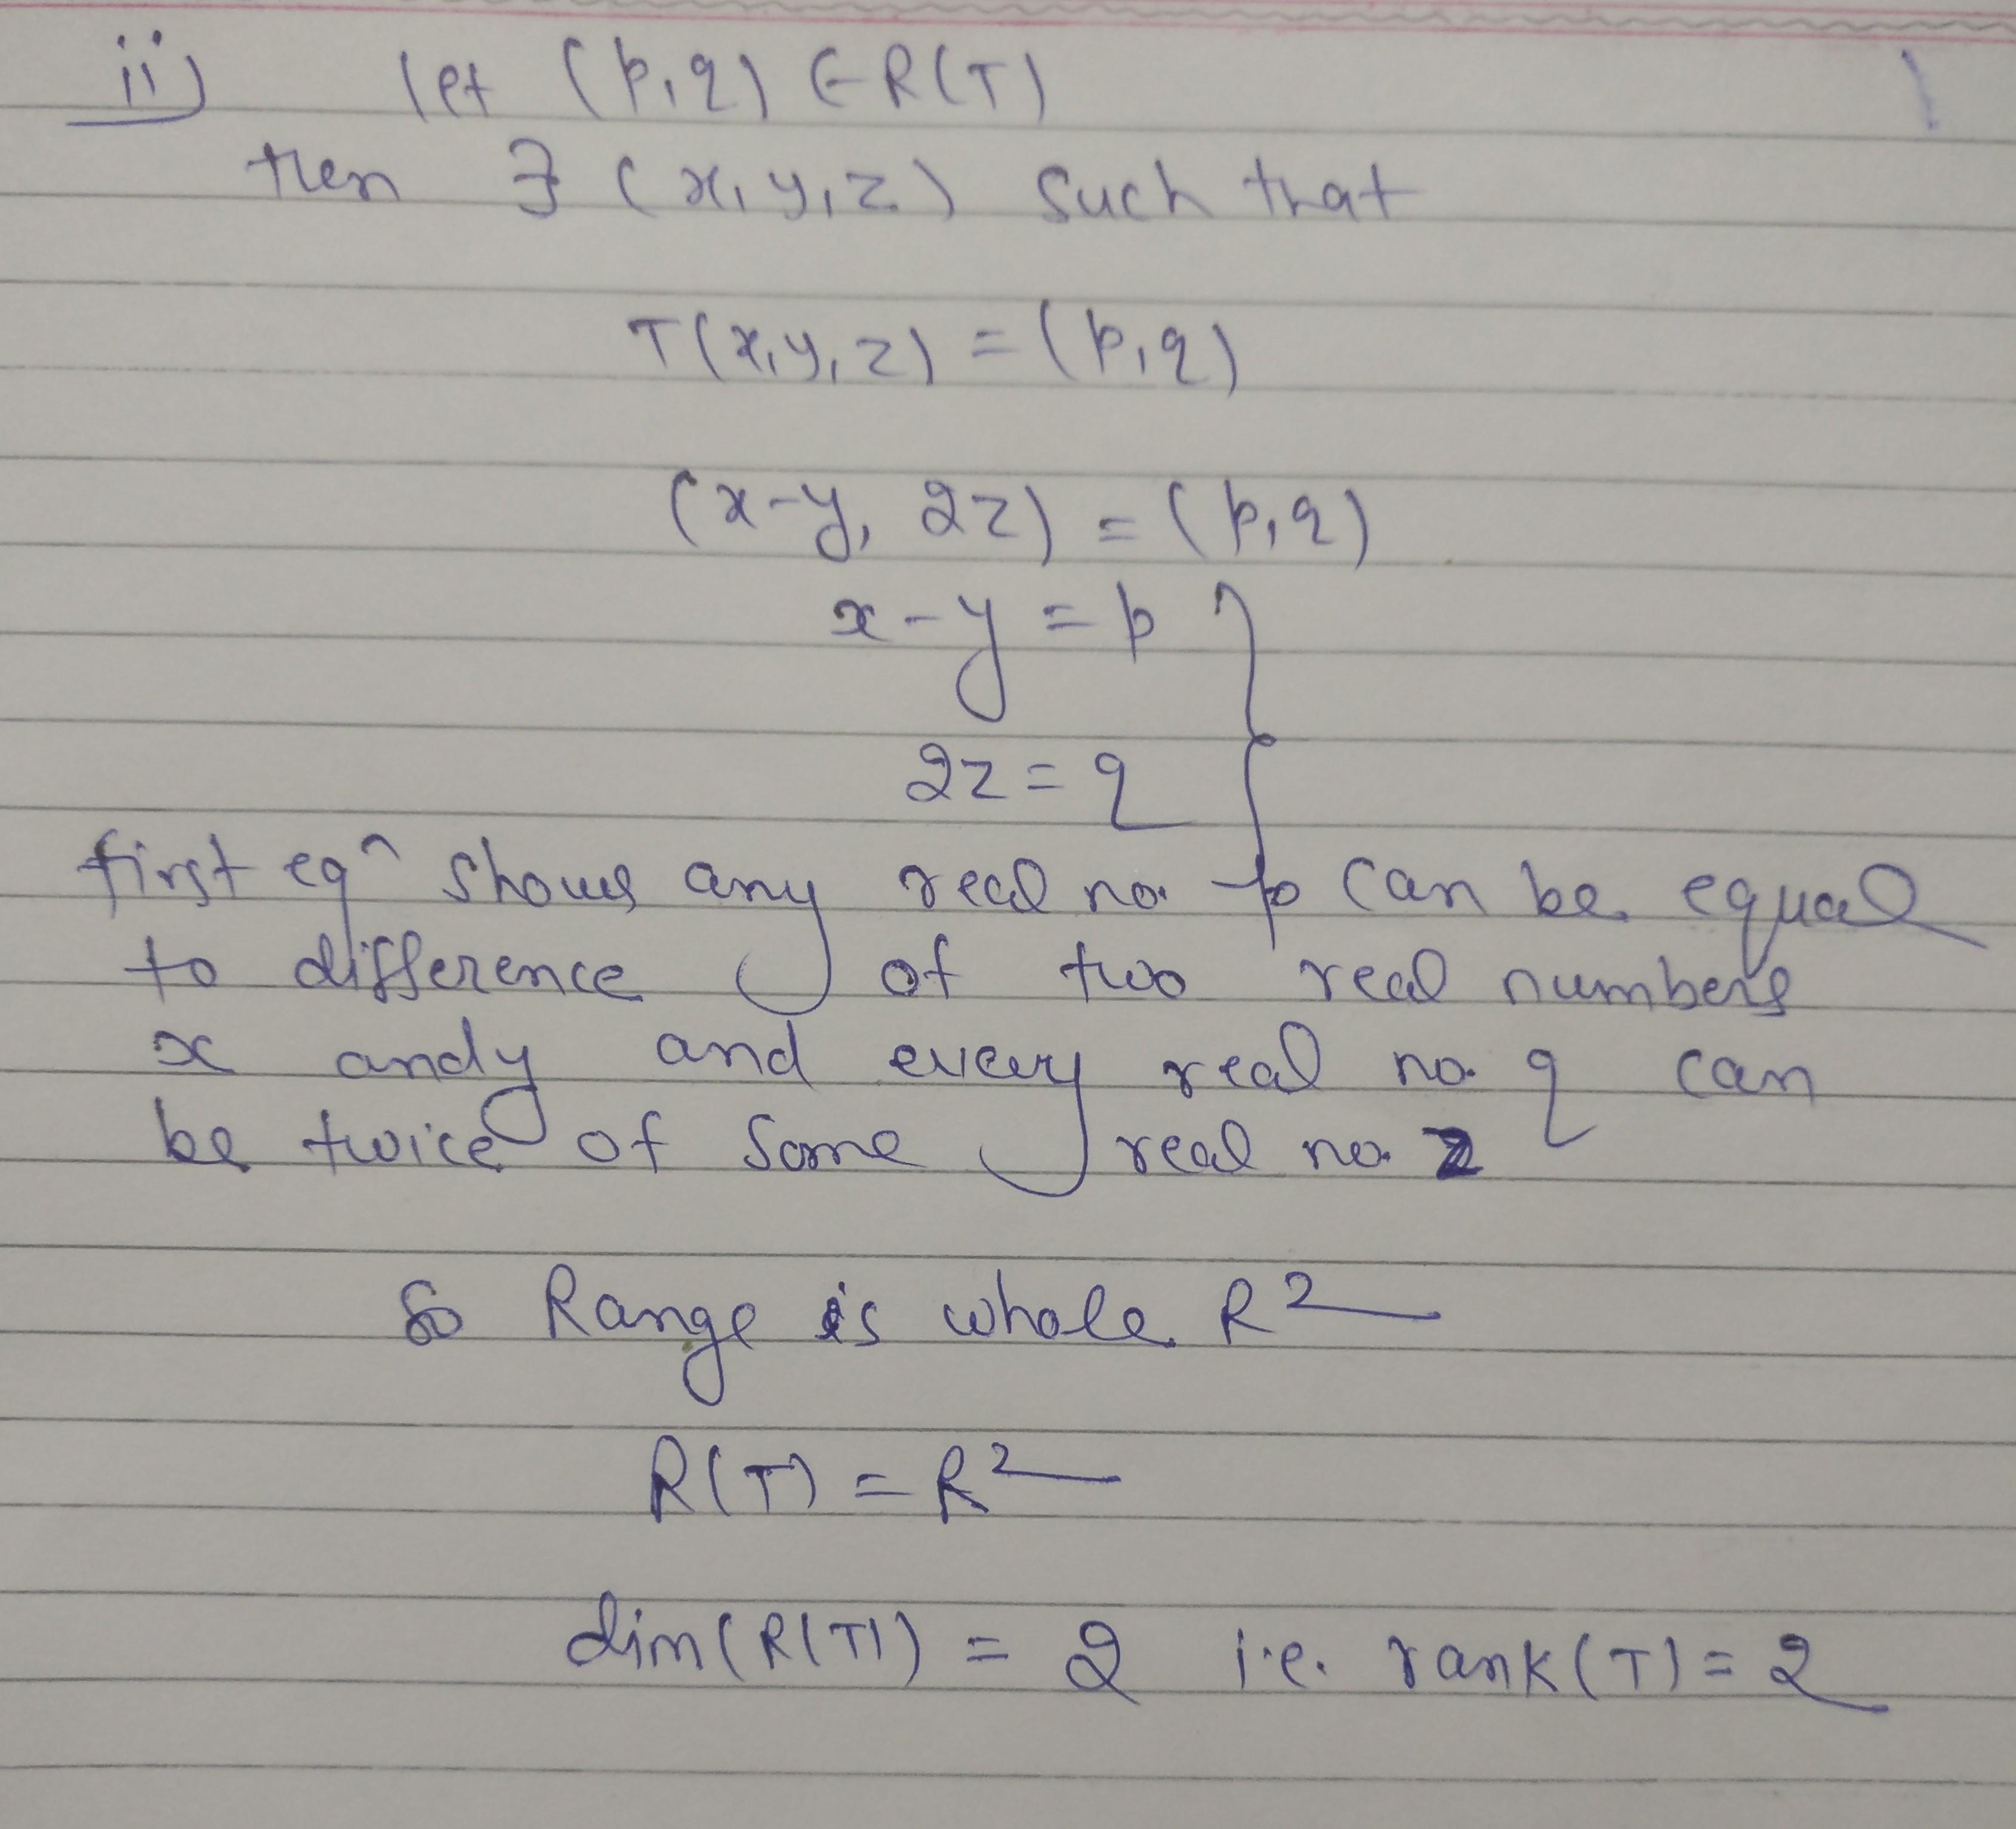 ii) let (p,q) ∈ R(T)
then ∃ (x,y,z) such that
T(x,y,z) = (p,q)
(x-y, 2z) = (p,q)
x-y = p
2z = q
first eqn shows any real no. p can be equal
to difference of two real numbers
x and y and every real no. q can
be twice of some real no. z
So Range is whole R²
R(T) = R²
dim(R(T)) = 2 i.e. rank(T) = 2